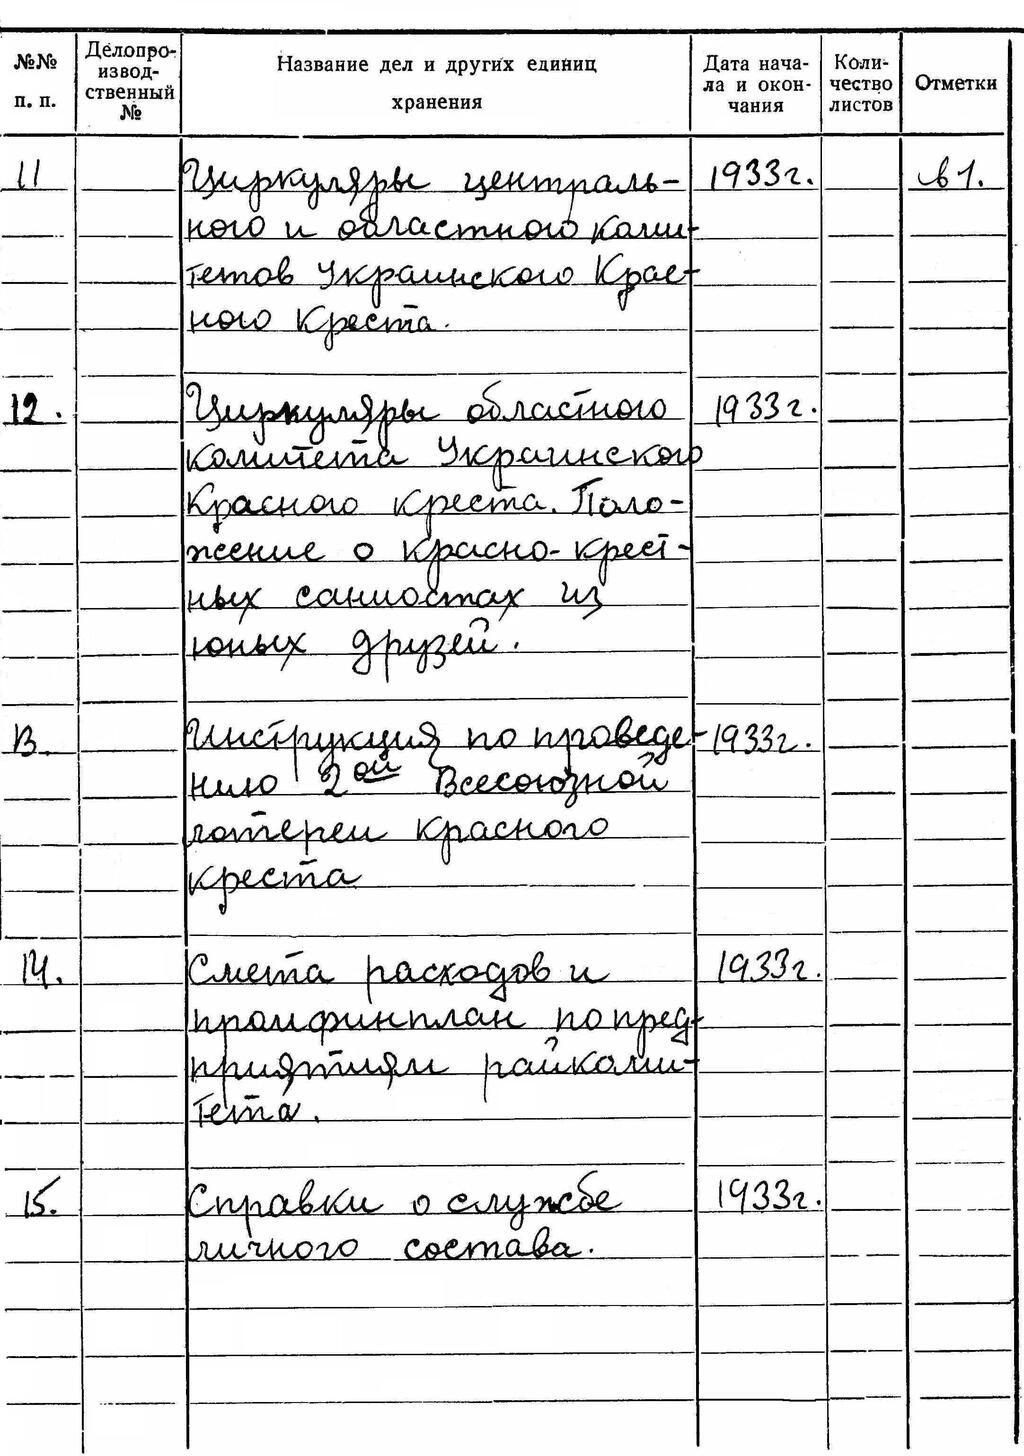 №№ п. п.
Делопро-
извод-
ственный
№
Название дел и других единиц
хранения
Дата нача-
ла и окон-
чания
Коли-
чество
листов
Отметки
11 Циркуляры централь- 1933г. в 1.
ного и областного коми-
тетов Украинского Крас-
ного Креста.
12. Циркуляры областного 1933г.
комитета Украинского
Красного креста. Поло-
жение о красно-крест-
ных санпостах из
юных друзей.
13. Инструкция по проведе- 1933г.
нию 2ой Всесоюзной
лотереи Красного
креста
14. Смета расходов и 1933г.
промфинплан по пред-
приятиям райкоми-
тета.
15. Справки о службе 1933г.
личного состава.